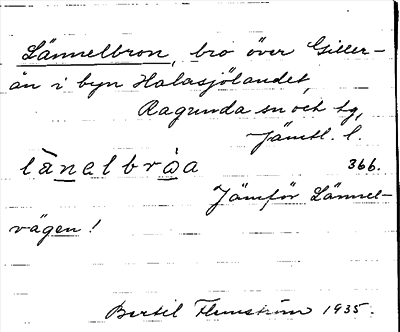 Lännelbron, bro över Giller-
ån i byn Halasjölandet,
Ragunda sn och tg,
Jämtl. l.
lànelbràa 366.
Jämför Lännel-
vägen!
Bertil Flemström 1935.